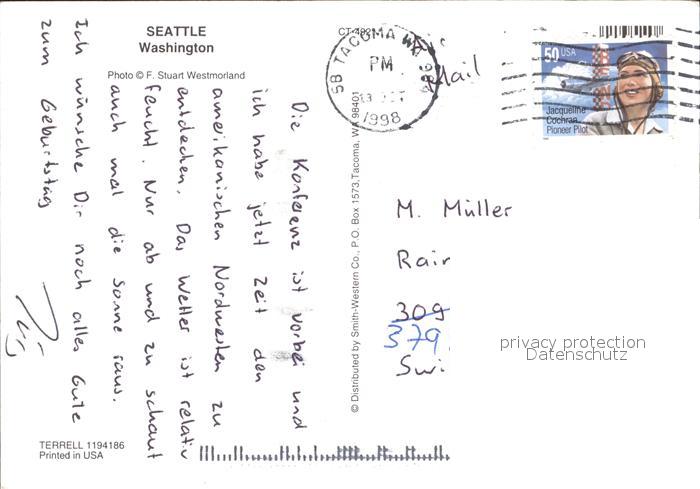 SEATTLE
Washington
Photo © F. Stuart Westmorland
Die Konferenz ist vorbei und
ich habe jetzt Zeit den
amerikanischen Nordwesten zu
entdecken. Das Wetter ist relativ
feucht. Nur ab und zu schaut
auch mal die Sonne raus.
Ich wünsche Dir noch alles Gute
zum Geburtstag
TERRELL 1194186
Printed in USA
© Distributed by Smith-Western Co., P.O. Box 1573, Tacoma, WA 98401
TACOMA WA
PM
1998
Mail
50 USA
Jacqueline
Cochran
Pioneer Pilot
M. Müller
Rair
309
379
Swi
privacy protection
Datenschutz